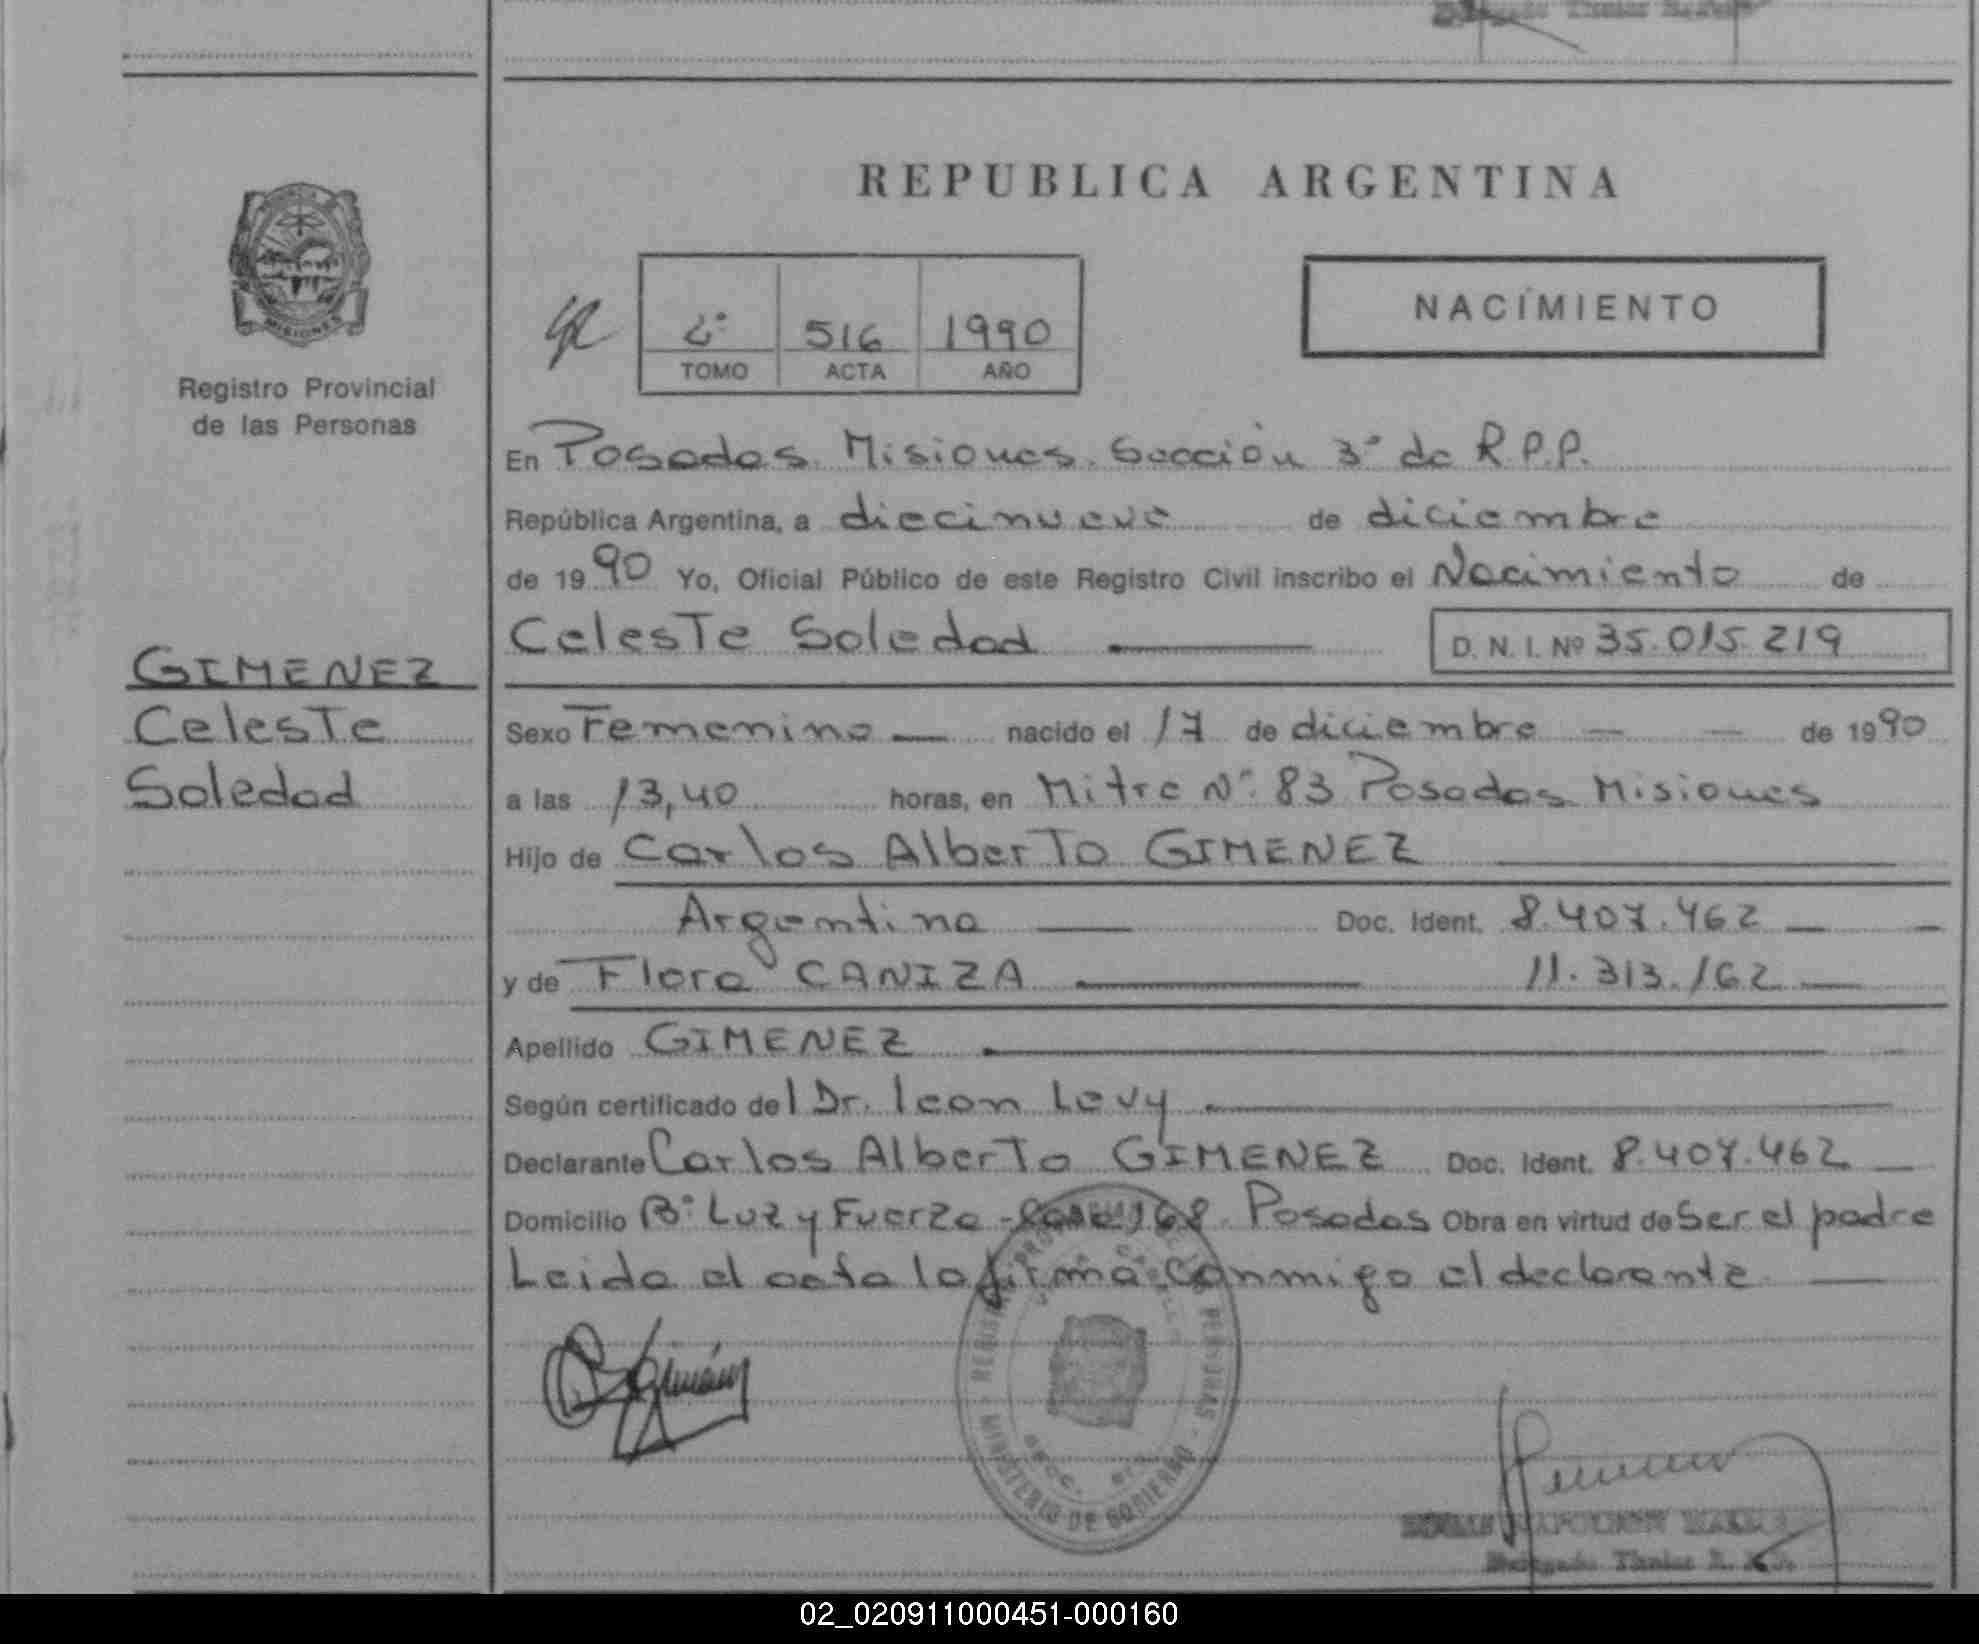 REPUBLICA ARGENTINA
MISIONES
Registro Provincial
de las Personas
2º 516 1990
TOMO ACTA AÑO
NACIMIENTO
En Posadas. Misiones. Sección 3ª de R.P.P.
República Argentina, a diecinueve de diciembre
de 1990 Yo, Oficial Público de este Registro Civil inscribo el Nacimiento de
Celeste Soledad
D. N. I. Nº 35.015.219
GIMENEZ
Celeste
Soledad
Sexo Femenino nacido el 17 de diciembre de 1990
a las 13,40 horas, en Mitre Nº 83 Posadas Misiones
Hijo de Carlos Alberto GIMENEZ
Argentina Doc. Ident. 8.407.462
y de Flora CANIZA 11.313.162
Apellido GIMENEZ
Según certificado del Dr. leon Levy
Declarante Carlos Alberto GIMENEZ Doc. Ident. 8.407.462
Domicilio Bº Luz y Fuerza - Casa 168. Posadas Obra en virtud de Ser el padre
Leida el acta la firma conmigo el declarante
REGISTRO PROVINCIAL DE LAS PERSONAS
MINISTERIO DE GOBIERNO
02_020911000451-000160